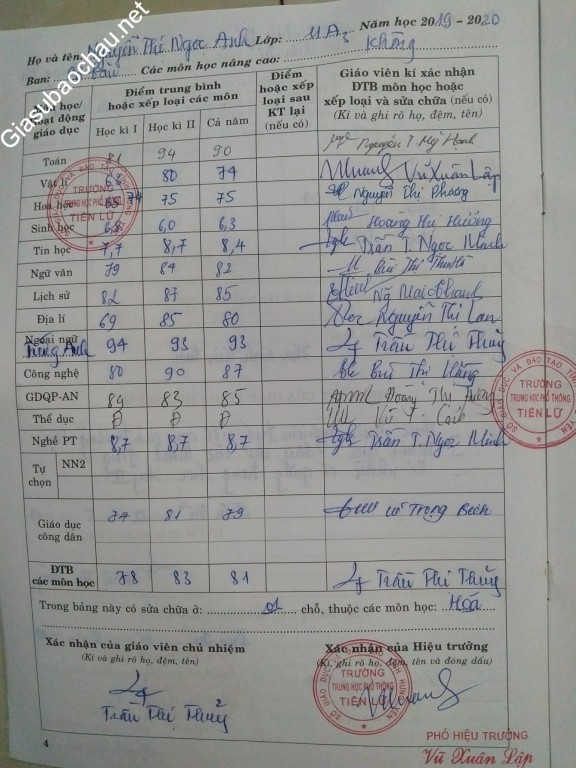 Họ và tên: Nguyễn Thị Ngọc Anh Lớp: 11A2 Năm học 2019 - 2020
Ban: Cơ bản Các môn học nâng cao: Không
Môn học/ hoạt động giáo dục
Điểm trung bình hoặc xếp loại các môn
Học kì I Học kì II Cả năm
Điểm hoặc xếp loại sau KT lại (nếu có)
Giáo viên kí xác nhận ĐTB môn học hoặc xếp loại và sửa chữa (nếu có)
(Kí và ghi rõ họ, đệm, tên)
Toán 81 94 90 Nguyễn T. Mỹ Hạnh
Vật lí 80 74 Vũ Xuân Lập
Hoá học 65 74 75 75 Nguyễn Thị Phương
Sinh học 6,8 6,0 6,3 Hoàng Thị Hường
Tin học 7,7 8,7 8,4 Trần T. Ngọc Minh
Ngữ văn 79 84 82 Bùi Thị Thu Hà
Lịch sử 82 87 85 Ng Mai
Địa lí 69 85 80 Nguyễn Thị Lan
Ngoại ngữ
Tiếng Anh 94 93 93 Trần Thị Thủy
Công nghệ 80 90 87 Bùi Thị Hằng
GDQP-AN 89 83 85 Hoàng Thị
Thể dục Đ Đ Đ Vũ T.
Nghề PT 8,7 8,7 8,7 Trần T. Ngọc Minh
Tự chọn
NN2
Giáo dục công dân 74 81 79 Trọng
ĐTB các môn học 78 83 81 Trần Thị Thủy
Trong bảng này có sửa chữa ở: 01 chỗ, thuộc các môn học: Hóa
Xác nhận của giáo viên chủ nhiệm
(Kí và ghi rõ họ, đệm, tên)
Trần Thị Thủy
Xác nhận của Hiệu trưởng
(Kí, ghi rõ họ, đệm, tên và đóng dấu)
TRƯỜNG
TRUNG HỌC PHỔ THÔNG
TIÊN LỮ
PHÓ HIỆU TRƯỞNG
Vũ Xuân Lập
4
TRƯỜNG
TRUNG HỌC PHỔ THÔNG
TIÊN LỮ
TRƯỜNG
TRUNG HỌC PHỔ THÔNG
TIÊN LỮ
Giasubaochau.net